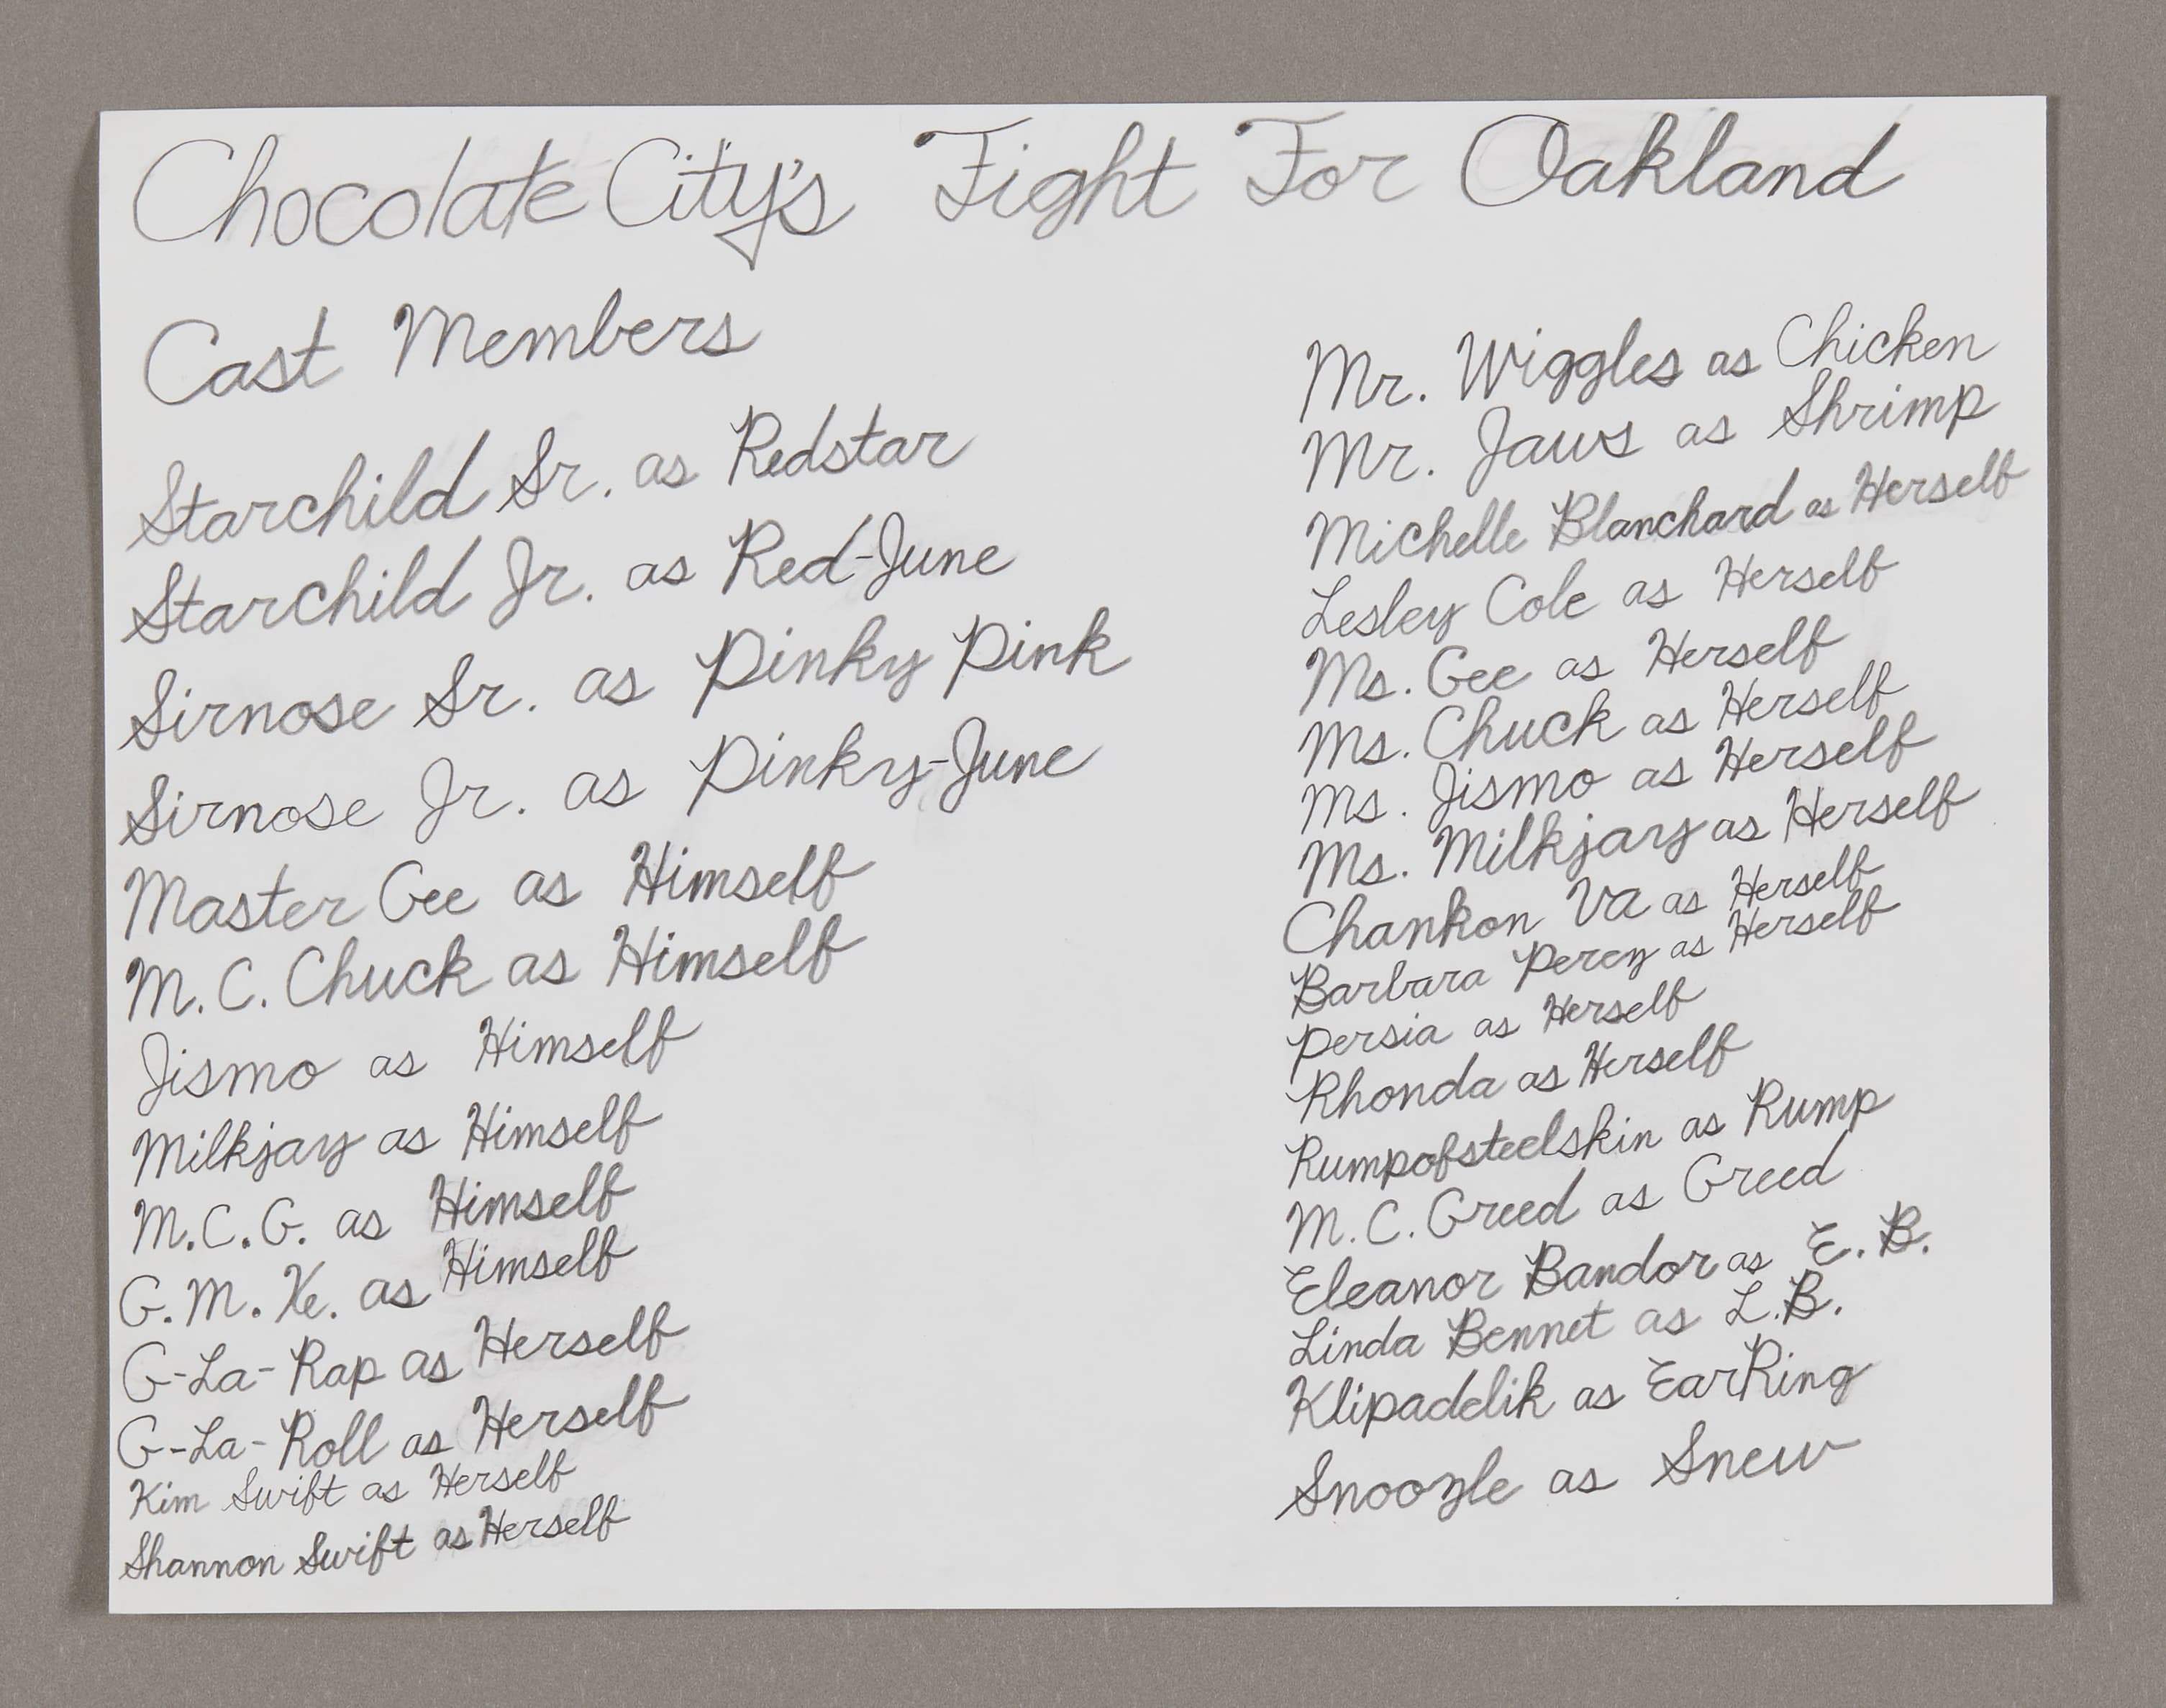 Chocolate City's Fight For Oakland
Cast Members
Starchild Sr. as Redstar
Starchild Jr. as Red-June
Sirnose Sr. as Pinky Pink
Sirnose Jr. as Pinky-June
Master Gee as Himself
M.C. Chuck as Himself
Jismo as Himself
Milkjay as Himself
M.C.G. as Himself
G.M. Ke. as Himself
G-La-Rap as Herself
G-La-Roll as Herself
Kim Swift as Herself
Shannon Swift as Herself
Mr. Wiggles as Chicken
Mr. Jaws as Shrimp
Michelle Blanchard as Herself
Lesley Cole as Herself
Ms. Gee as Herself
Ms. Chuck as Herself
Ms. Jismo as Herself
Ms. Milkjay as Herself
Chankon Va as Herself
Barbara Percy as Herself
Persia as Herself
Rhonda as Herself
Rumpofsteelskin as Rump
M.C. Greed as Greed
Eleanor Bandor as E.B.
Linda Bennet as L.B.
Klipadelik as EarRing
Snoozle as Snew